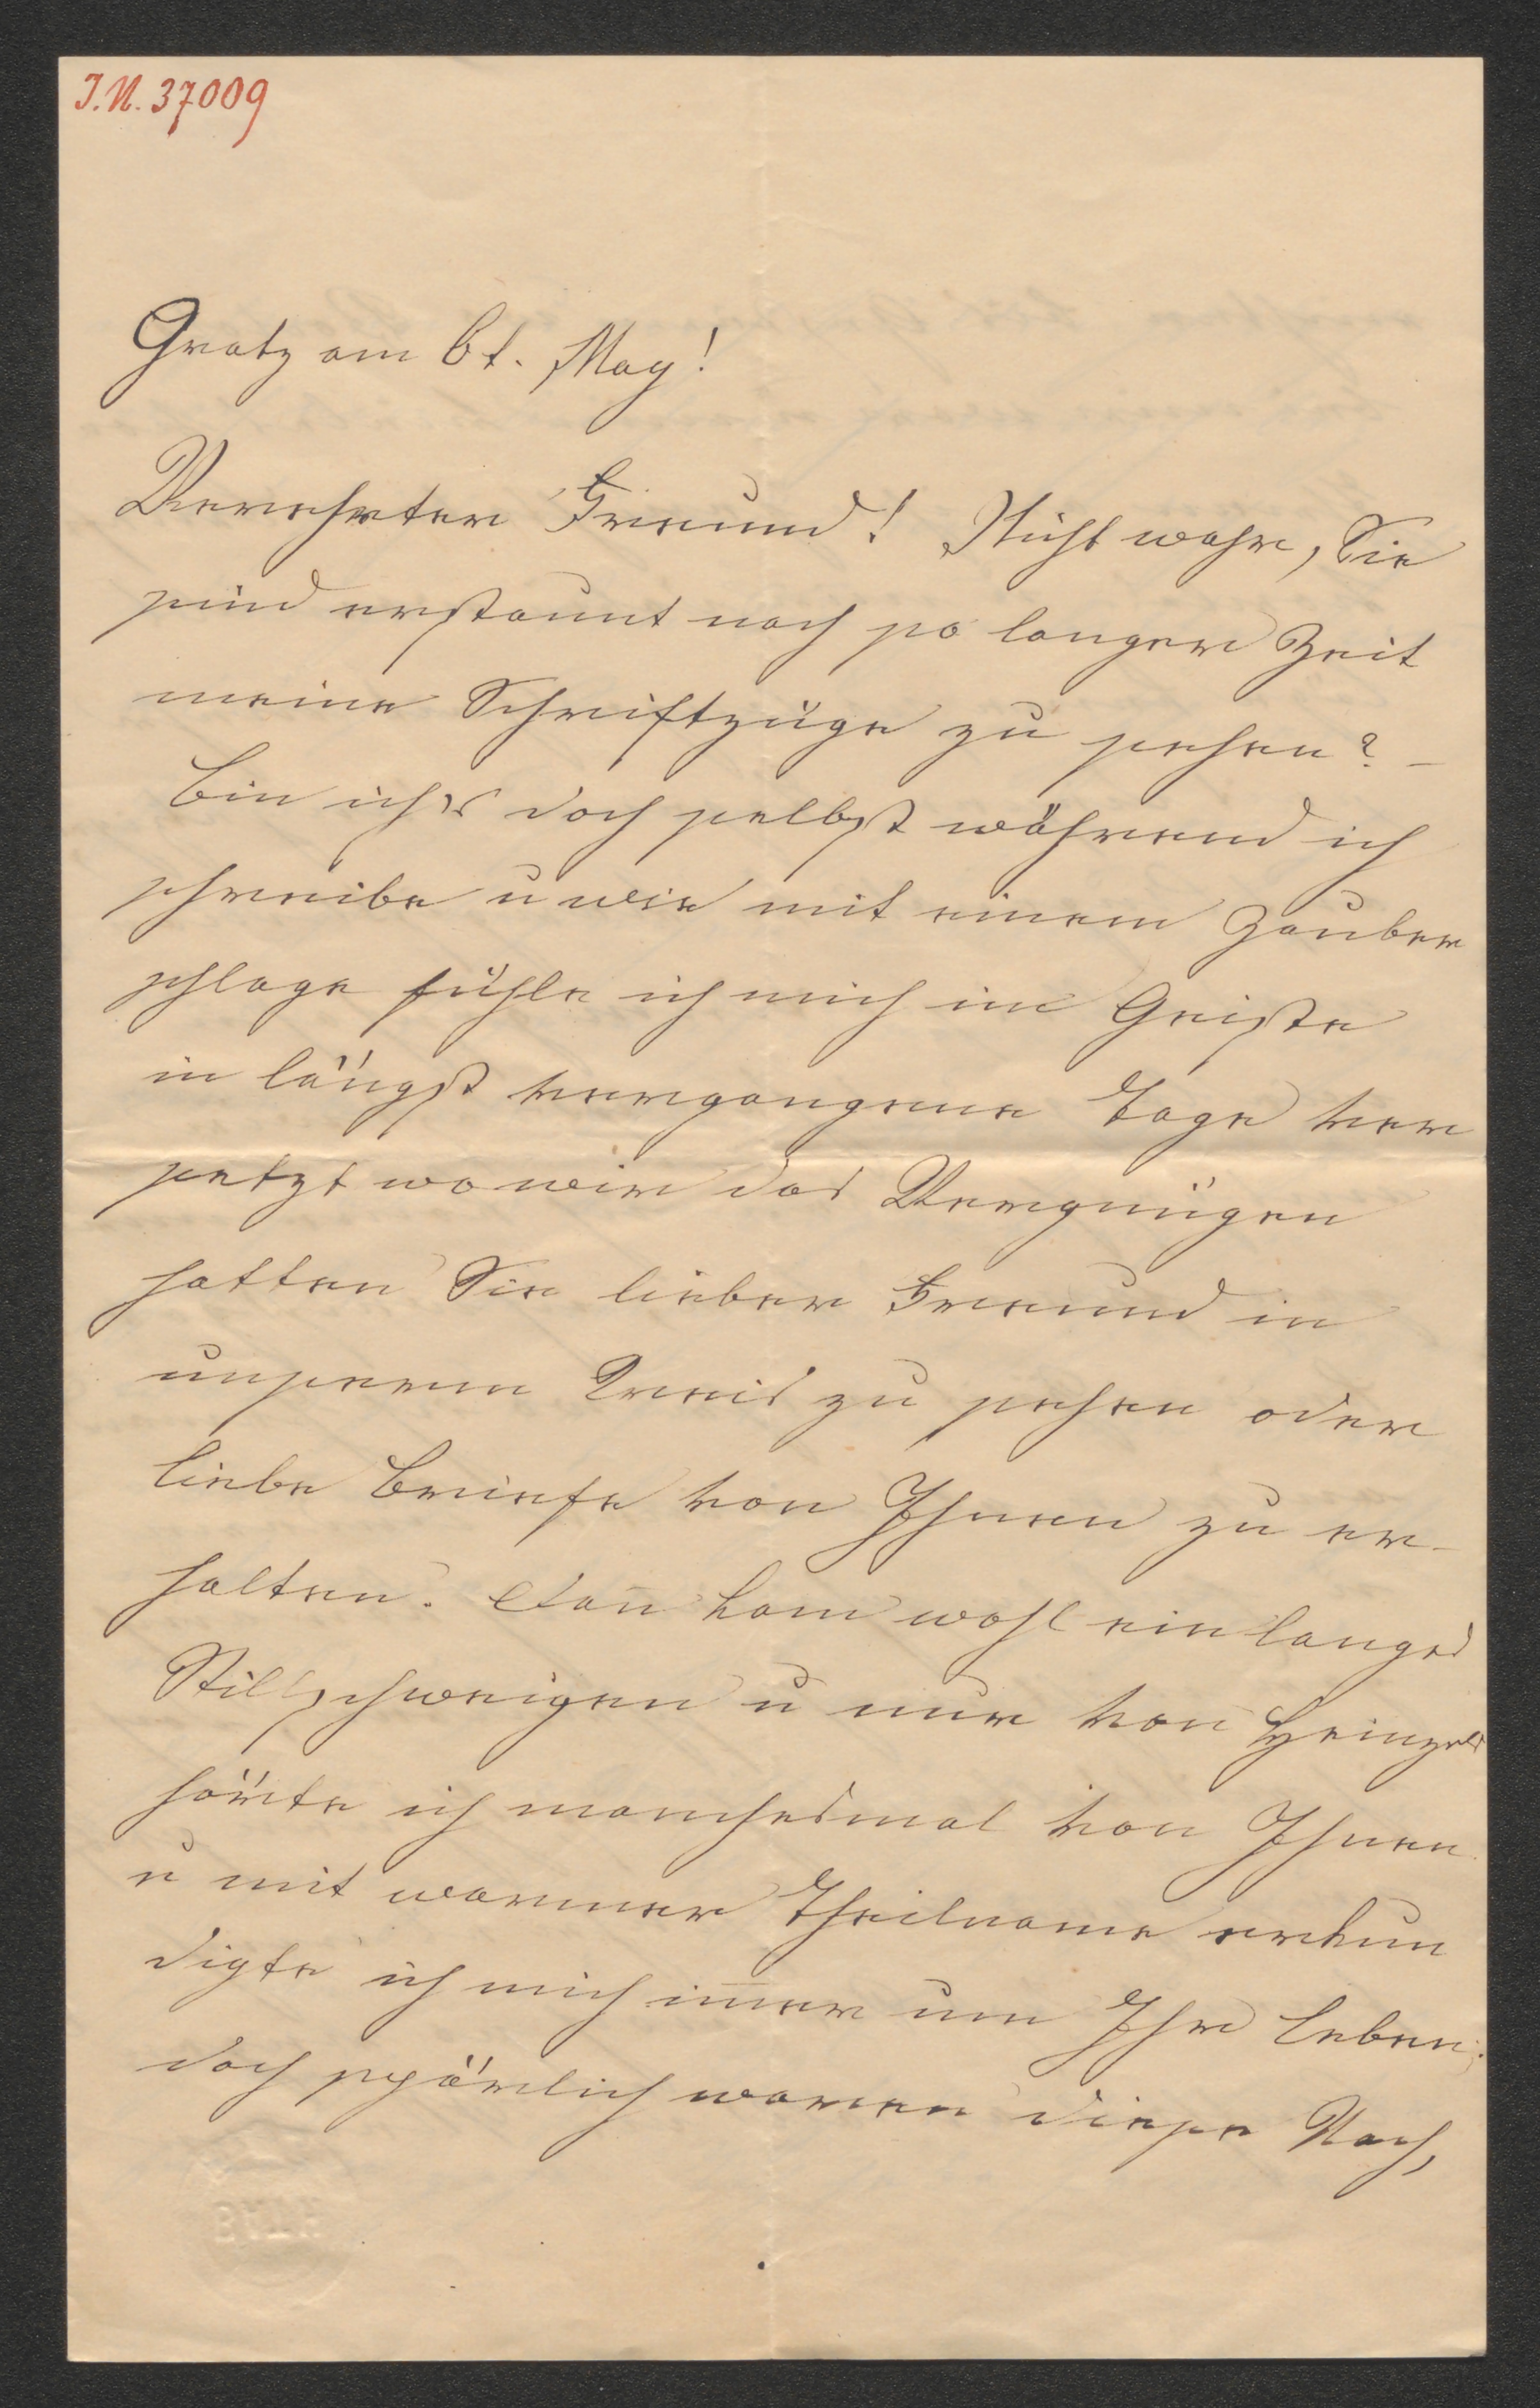 J.N. 37009
Gratz am 6t. May!
Verehrter Freund! Nicht wahr, Sie
sind erstaunt nach so langer Zeit
meine Schriftzüge zu sehen? –
Bin ich's doch selbst während ich
schreibe u wie mit einem Zauber
schlage fühle ich mich im Geiste
in längst vergangene Tage ver
setzt wo wir das Vergnügen
hatten Sie lieber Freund in
unserem Kreis zu sehen oder
liebe Briefe von Ihnen zu er-
halten. Dan̅ kam wohl ein langes
Stillschweigen u nur von Heinzel
hörte ich manchesmal von Ihnen
u mit warmer Theilname erkun
digte ich mich im̅er um Ihr Leben;
doch spärlich waren diese Nach,